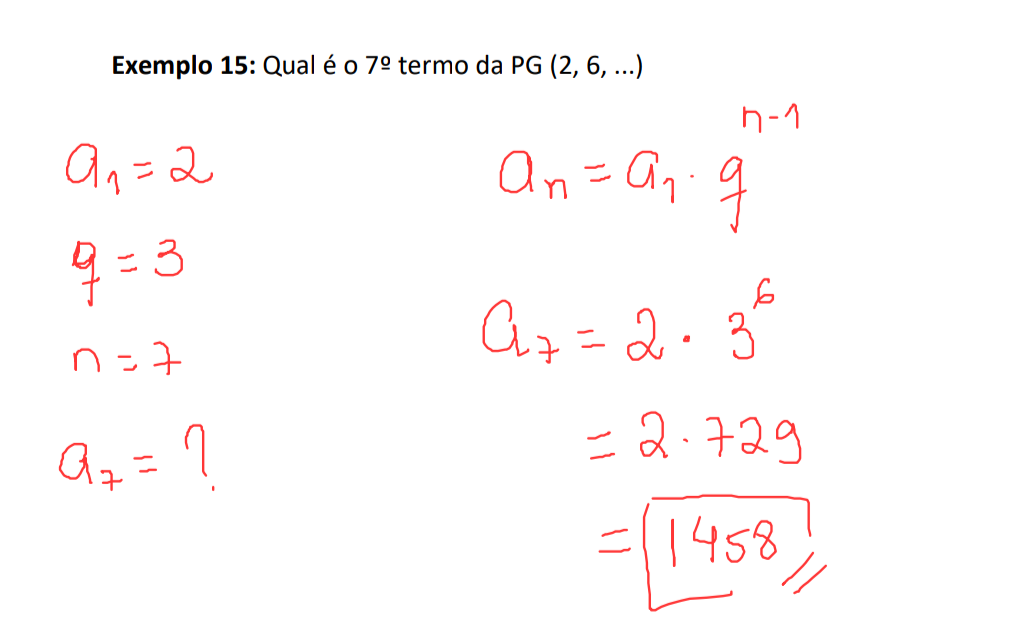 Exemplo 15: Qual é o 7º termo da PG (2, 6, ...)
a₁ = 2
q = 3
n = 7
a₇ = ?
aₙ = a₁ · qⁿ⁻¹
a₇ = 2 · 3⁶
= 2 · 729
= 1458 //